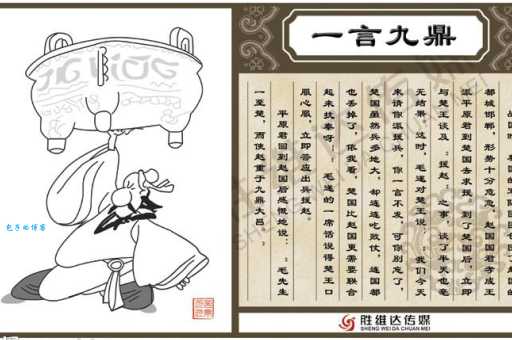 一言九鼎
都城邯郸，形势十分危急，赵国国君孝成王
派平原君到楚国去求援。到了楚国后，立即
与楚王谈及“援赵”之事，谈了半天也毫
无结果。这时，毛遂对楚王说：“我们今天
来请你派援兵，你一言不发，可你别忘了，
楚国虽然兵多地大，却连连吃败仗，连国都
也丢掉了，依我看，楚国比赵国更需要联合
起来抗秦呀！”毛遂的一席话说得楚王口
服心服，立即答应出兵援赵。
平原君回到赵国后感慨地说：“毛先生
一至楚，而使赵重于九鼎大吕。”
胜维达传媒
SHENG WEI DA CHUAN MEI